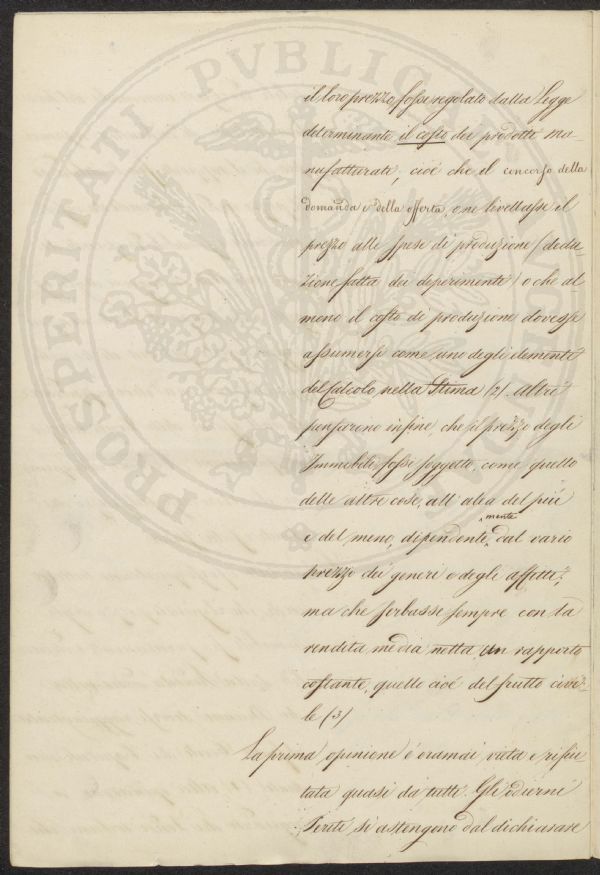 il loro prezzo, fosse regolato dalla Legge
determinante il costo dei prodotti ma-
nufatturati, cioè che il concorso della
domanda e della offerta, ne livellasse il
prezzo alle spese di produzione (dedu-
zione fatta dei deperimenti) o che al
meno il costo di produzione dovesse
assumersi come uno degli elementi
del Calcolo nella Stima (2). Altri
pensarono infine, che il prezzo degli
Immobili fosse soggetto, come quello
delle altre cose, all'alea del più
e del meno, dipendentemente dal vario
prezzo dei generi e degli affitti,
ma che serbasse sempre con la
rendita media netta un rapporto
costante, quello cioè del frutto civi-
le (3)
La prima opinione è oramai vieta e rifiu
tata quasi da tutti. Gli odierni
Periti si astengono dal dichiarare
PROSPERITATI PVBLICAE